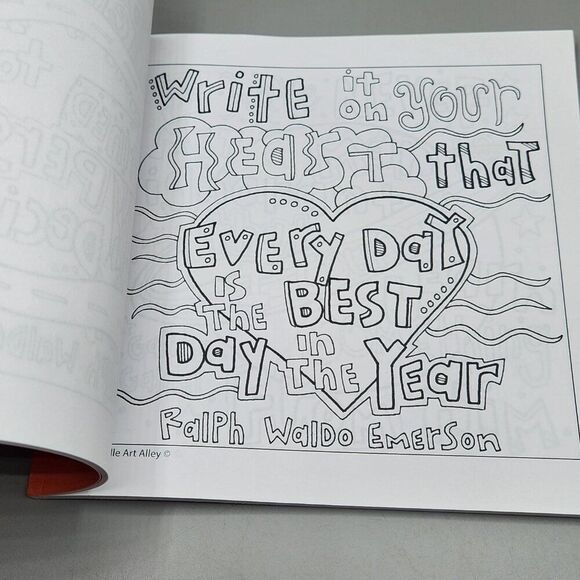 Write it on your
Heart that
Every Day
is
The BEST
Day in The Year
Ralph Waldo Emerson
lle Art Alley ©